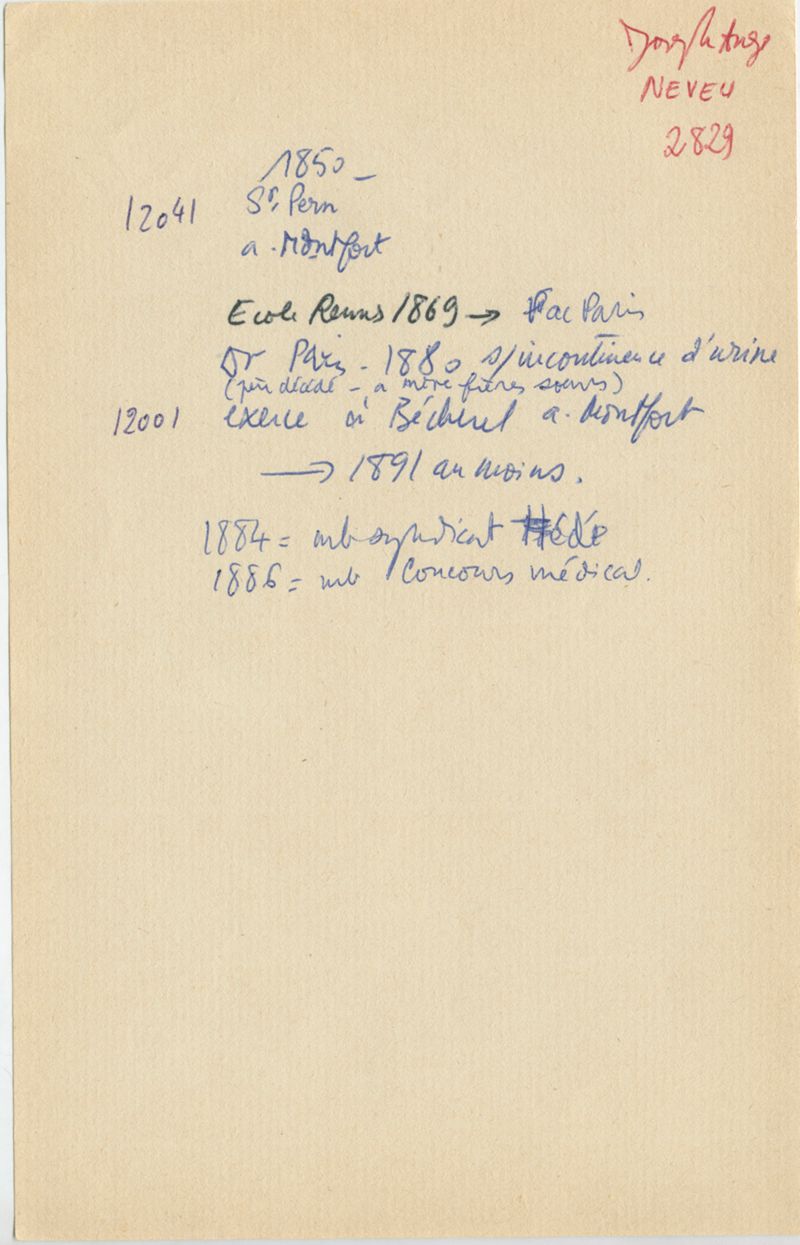 Joseph Ange
NEVEU
2829
1850 –
12041 St. Pern
a. Montfort
Ecole Rennes 1869 → Fac Paris
Dr Paris - 1880 s/incontinence d'urine
(père décédé - a mère frères soeurs)
12001 exerce à Bécherel a. Montfort
→ 1891 au moins.
1884 = mb syndicat Hédé
1886 = mb Concours médical.